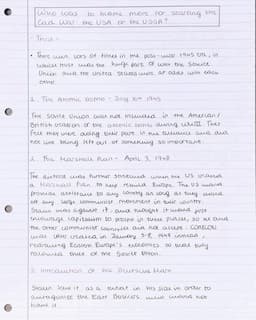 Who was to blame more for starting the
Cold War: the USA or the USSR?
• There were lots of times in the post-war 1945 era, in
which there was the tough part of war the Soviet
Union and the United States was at odds with each
other.
1. The Atomic Bomb - July 1945
The Soviet Union was not included in the American/
British creation of the atomic bomb during WWII. They
felt they were doing their part in the alliance and
not like being left out of something so important.
2. The Marshall Plan - April 3, 1948
The distrust was further strained when the US created
a Marshall Plan to help rebuild Europe. The US would
provide assistance to any country as long as they
did not any large communist movement in their country.
Stalin was against it, and thought it would just
encourage capitalism to people in these places, so he and
the other communist countries did not accept. COMECON
was also created in January 5-8, 1949 instead,
Eastern Europe's economies so that they
followed those of the Soviet Union.
3. Introduction of the Deutsche Mark
Stalin saw it as a threat in his side in order to
antagonize the East Berliners, who would not
have it.